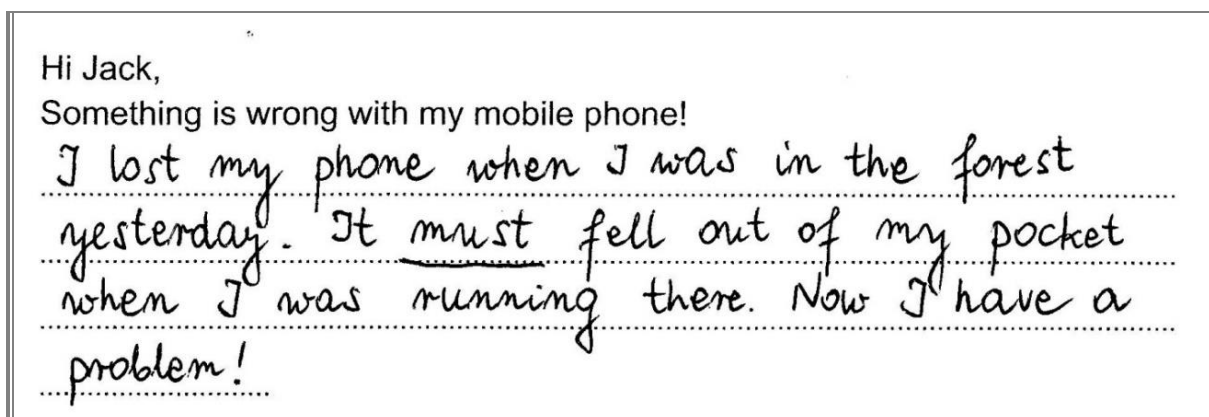 Hi Jack,
Something is wrong with my mobile phone!
I lost my phone when I was in the forest
yesterday. It must fell out of my pocket
when I was running there. Now I have a
problem!